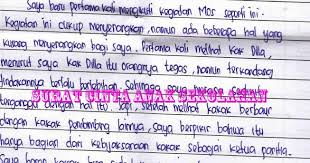 Saya baru pertama kali mengikuti kegiatan MOS seperti ini.
Kegiatan ini cukup menyenangkan, namun ada beberapa hal yang
kurang menyenangkan bagi saya. Pertama kali melihat kak Dilla,
menurut saya kak Dilla itu orangnya tegas, namun terkadang
tindakannya terlalu berlebihan. Sehingga saya merasa sedikit
SURAT CINTA ANAK SEKOLAHAN
terganggu dengan hal itu. Tapi, setelah melihat kakak berbaur
dengan kakak pembimbing lainnya, saya berpikir bahwa itu
hanya bagian dari kebijaksanaan kakak sebagai ketua panitia.